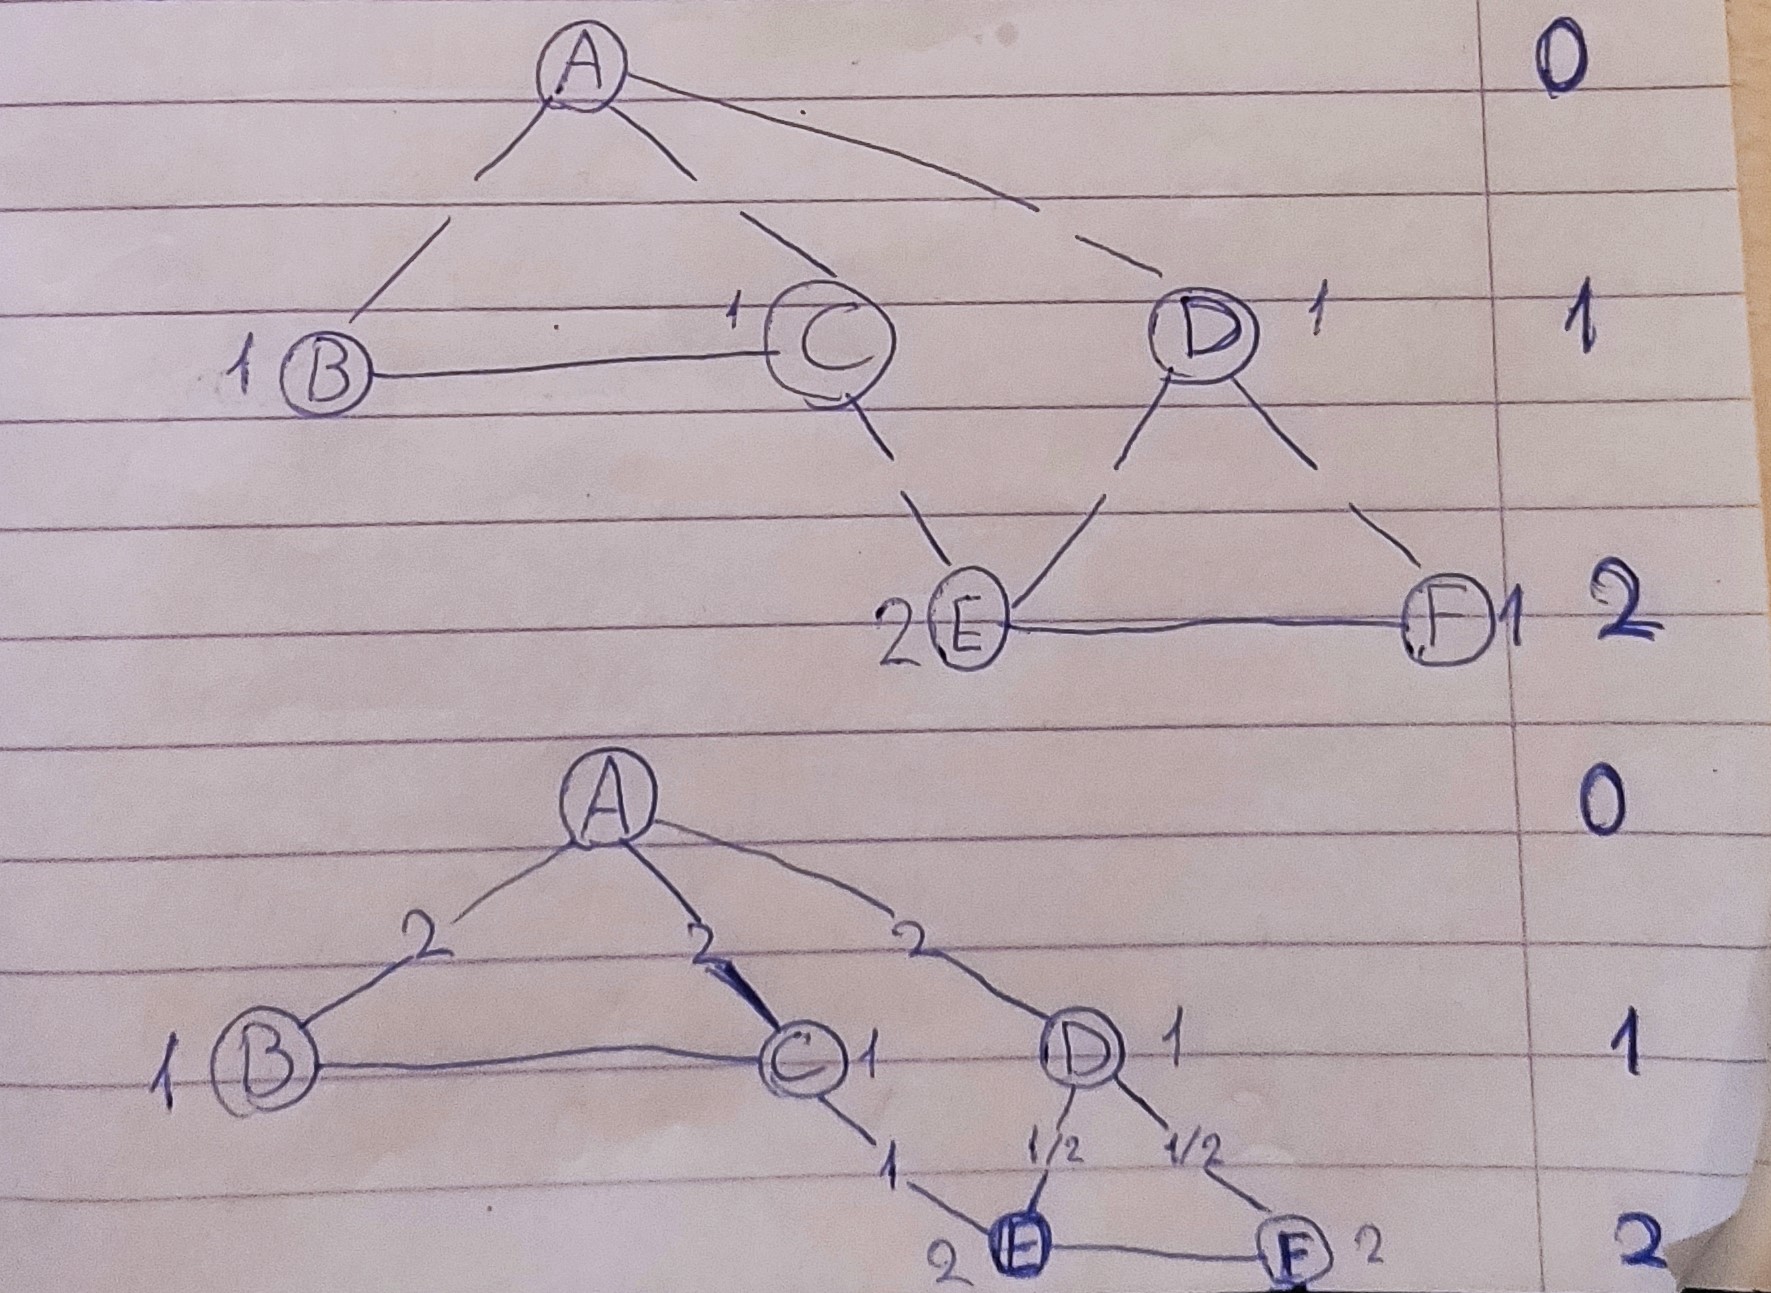 A 0
1 B 1 C D 1 1
2 E F 1 2
A 0
2 2 2
1 B C 1 D 1 1
1 1/2 1/2
2 E F 2 2